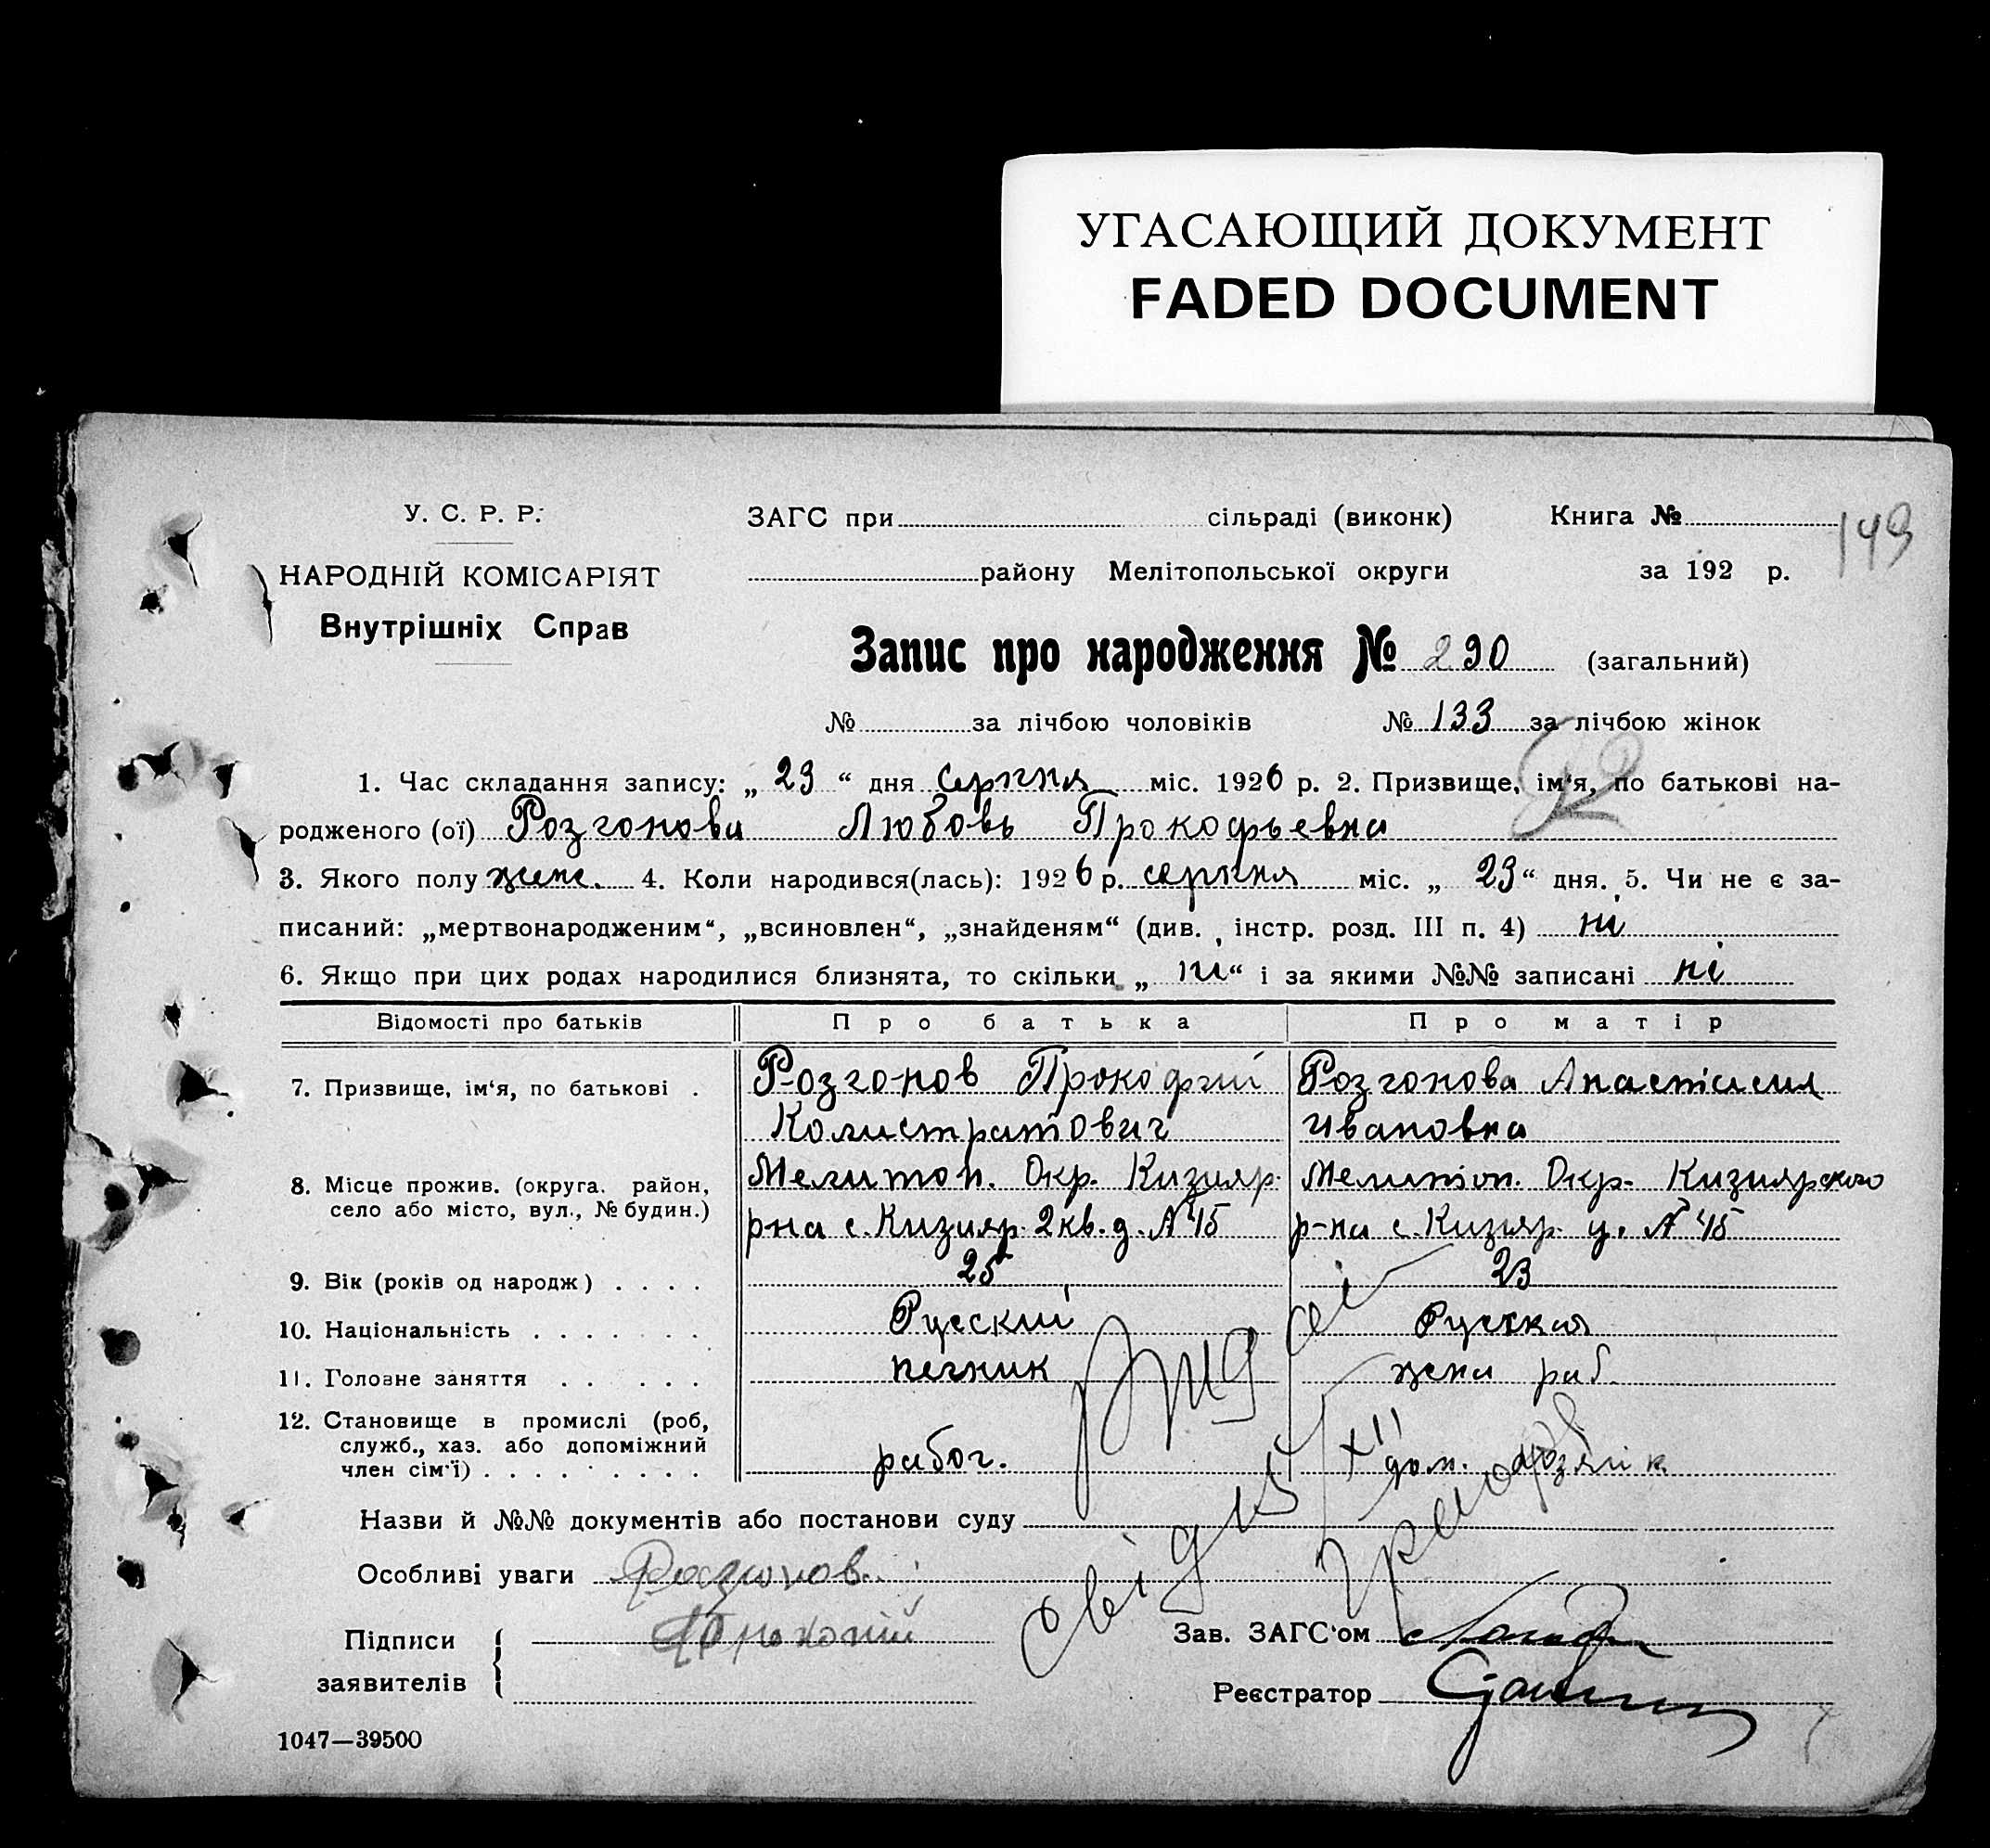 УГАСАЮЩИЙ ДОКУМЕНТ
FADED DOCUMENT
149
У. С. Р. Р. ЗАГС при сільраді (виконк) Книга №
НАРОДНІЙ КОМІСАРІЯТ району Мелітопольської округи за 192 р.
Внутрішніх Справ
Запис про народження № 290 (загальний)
№ за лічбою чоловіків № 133 за лічбою жінок
1. Час складання запису: „ 23 “ дня серпня міс. 1926 р. 2. Призвище, ім‘я, по батькові на-
родженого (ої) Розгонова Любовь Прокофьевна
3. Якого полу жен. 4. Коли народився(лась): 1926 р. серпня міс. „ 23 “ дня. 5. Чи не є за-
писаний: „мертвонародженим“, „всиновлен“, „знайденям“ (див. інстр. розд. III п. 4) ні
6. Якщо при цих родах народилися близнята, то скільки „ ні “ і за якими №№ записані ні
Відомості про батьків Про батька Про матір
7. Призвище, ім‘я, по батькові . Розгонов Прокофий Розгонова Анастасия
Калистратович Ивановна
8. Місце прожив. (округа. район, Мелитоп. Окр. Кизияр. Мелитоп. Окр. Кизиярского
село або місто, вул., № будин.) р-на с. Кизияр. 2 кв. д. № 45 р-на с. Кизияр. № 45
9. Вік (років од народж) . . . . 25 23
10. Національність . . . . . . . Русский Русская
11. Головне заняття . . . . . . печник жена раб.
12. Становище в промислі (роб,
служб., хаз. або допоміжний
член сім‘ї) . . . . . . . . . рабоч. дом. хозяйк
Назви й №№ документів або постанови суду
Особливі уваги Розгонов
Підписи Зав. ЗАГС‘ом
заявителів Реєстратор
1047—39500